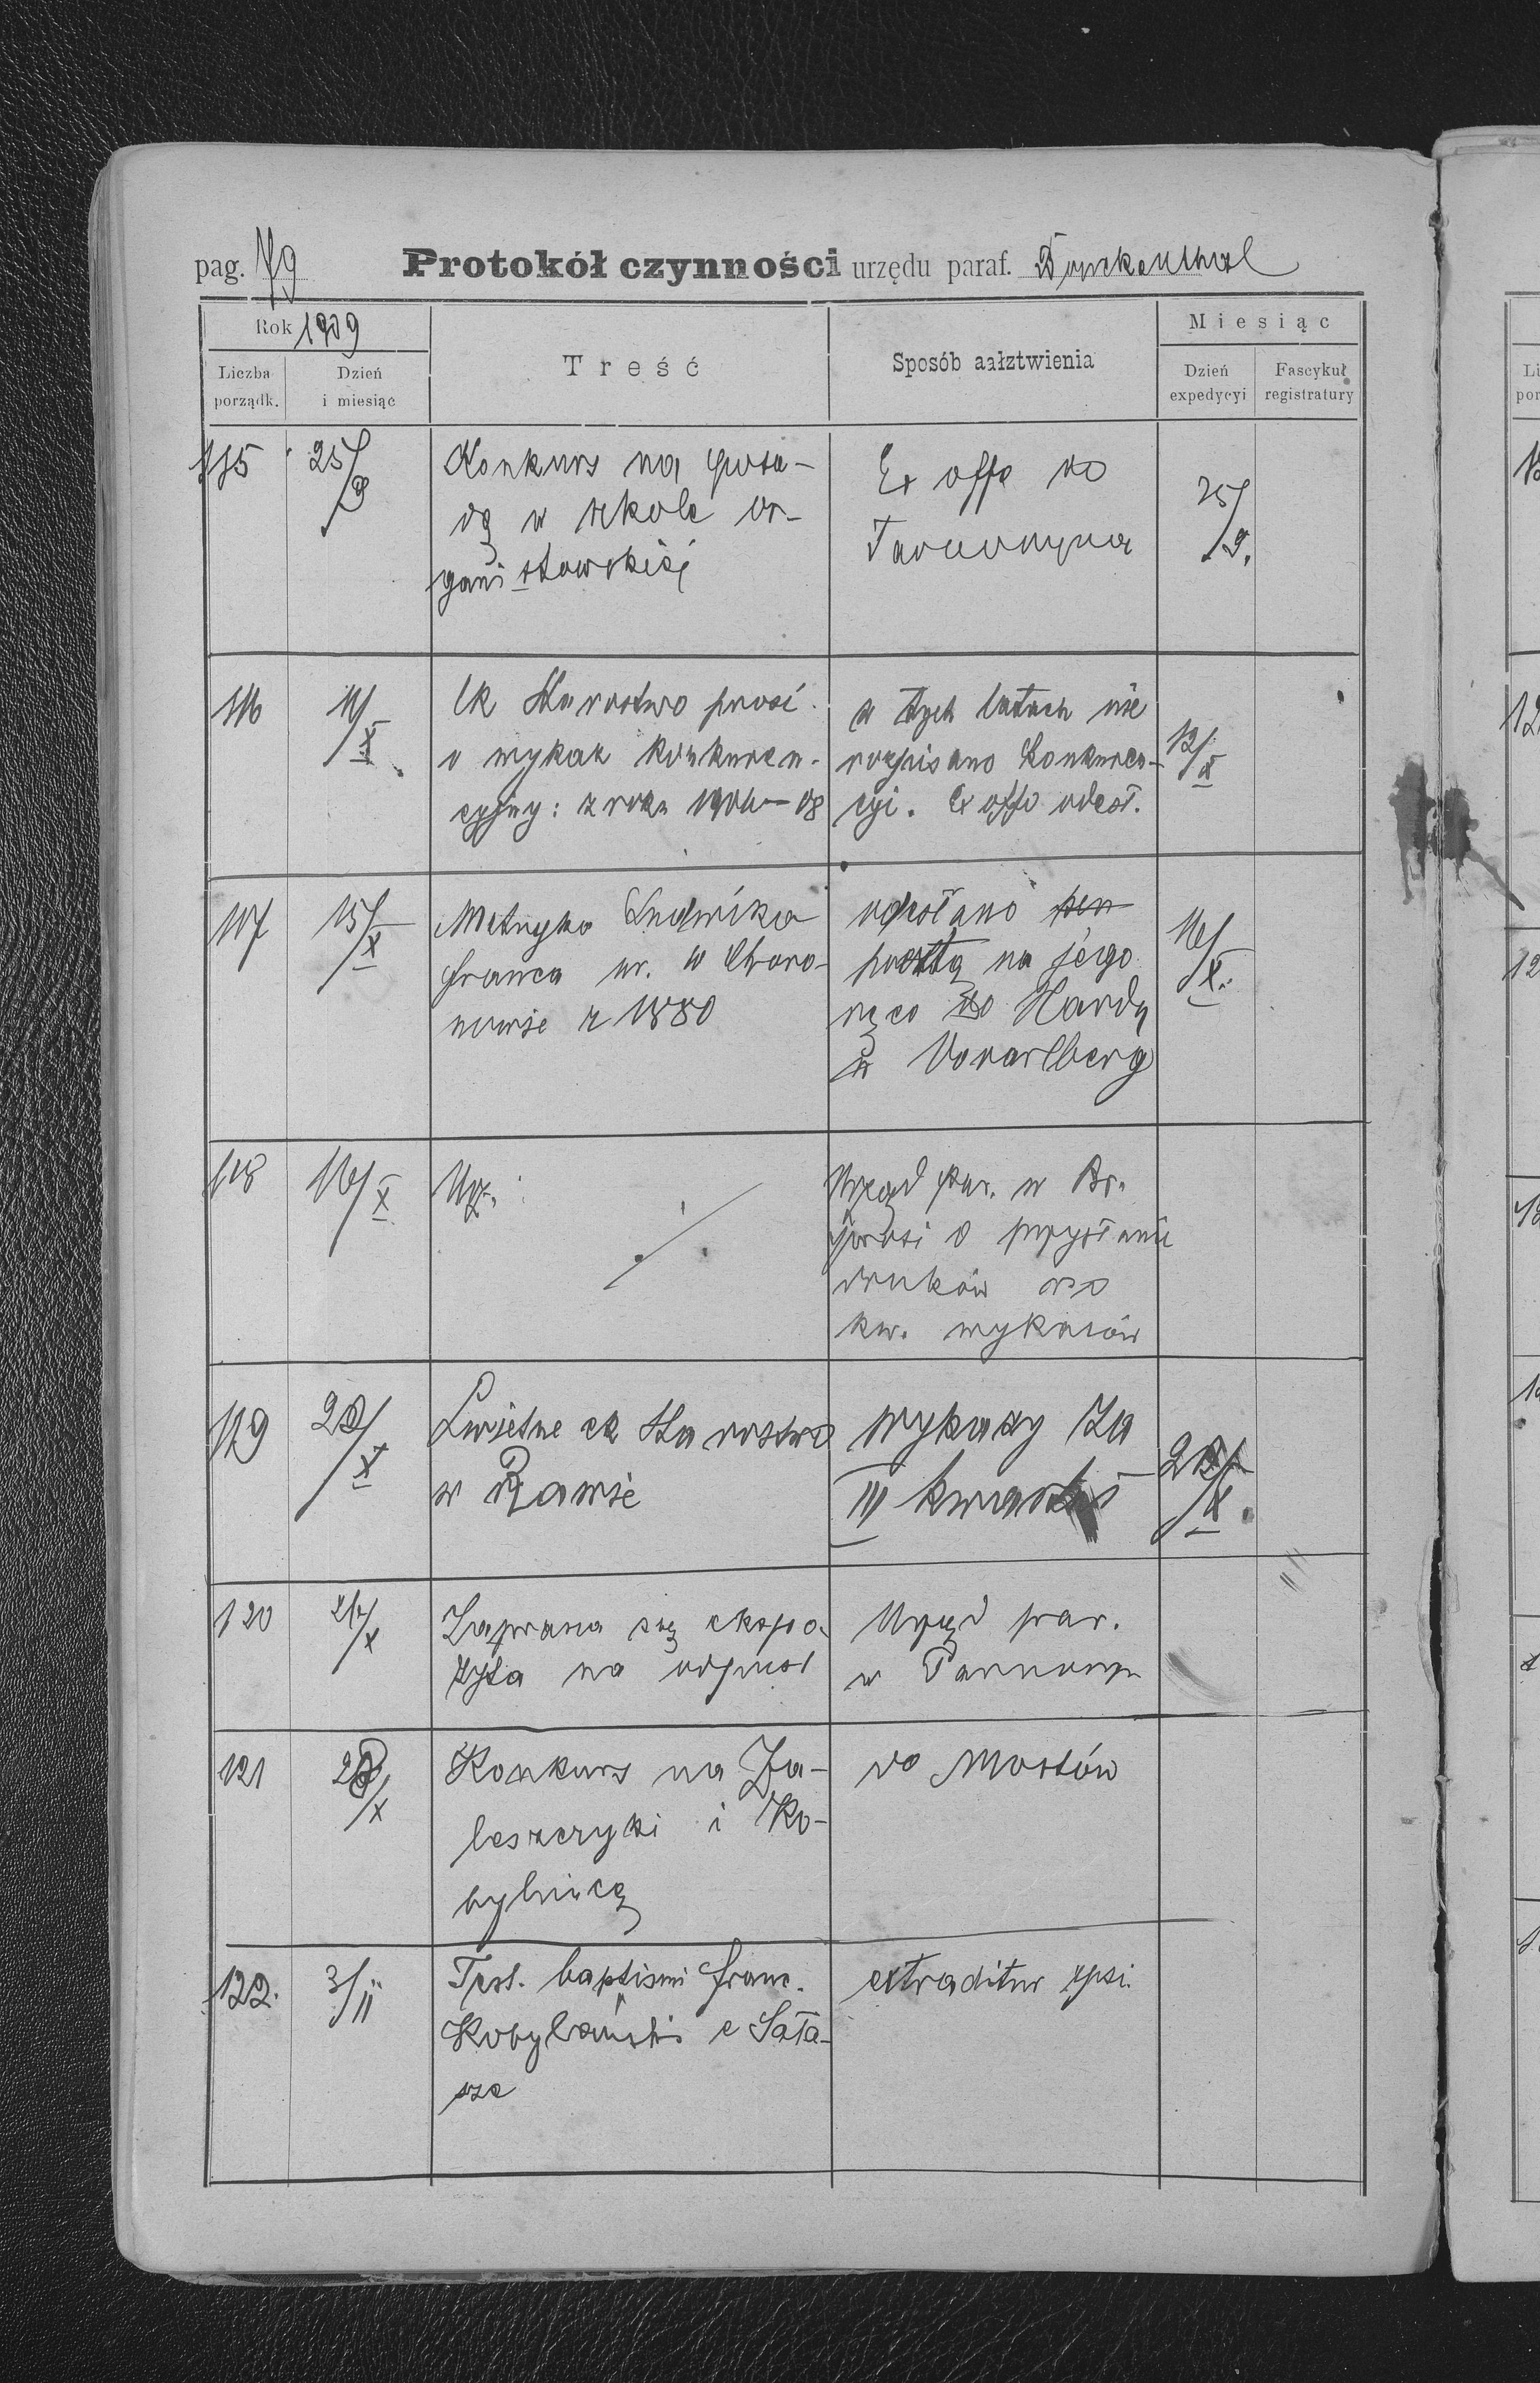 pag. 79 Protokół czynności urzędu paraf. Bruckenthal
Rok 1909
Liczba porządk.
Dzień i miesiąc
Treść
Sposób aałztwienia
Miesiąc
Dzień expedycyi
Fascykuł registratury
115 25/9
Konkurs na posa-
dę w szkole or-
ganistowskiej
Ex offo do
25/9.
116 11/X
Ck Starostwo prosi
o wykaz konkuren-
cyjny: z roku 1906-08
w tych latach nie
rozpisano konkuren-
cyi. Ex offo odesł.
12/X
117 15/X
Metryka Ludwika
Franca ur. w
1880
odesłano
pocztą na jego
ręce do Hardy
w Vorarlberg
16/X.
118 16/X
Urząd par. w Br.
prosi o przysłanie
druków do
kw. wykazów
119
Świetne ck Starostwo
w Rawie
Wykazy za
III kwartał
120
Zaprasza się ekspo-
zyta na odpust
Urząd par.
w
121
Konkurs na Za-
leszczyki i Ko-
bylnicę
do Mostów
122. 3/11
Test. baptismi Franc.
Kobylański e Sała-
sze
extraditur ipsi